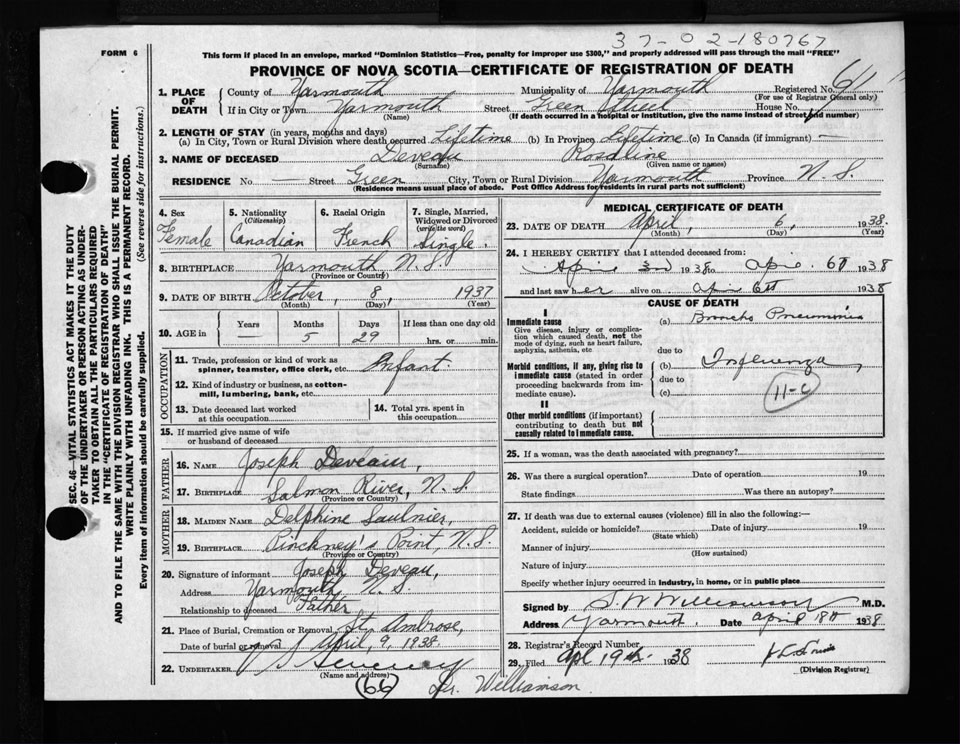 37-02-180767
FORM 6
This form if placed in an envelope, marked "Dominion Statistics—Free, penalty for improper use $300," and properly addressed will pass through the mail "FREE"
PROVINCE OF NOVA SCOTIA—CERTIFICATE OF REGISTRATION OF DEATH
SEC. 46—VITAL STATISTICS ACT MAKES IT THE DUTY
OF THE UNDERTAKER OR PERSON ACTING AS UNDER-
TAKER TO OBTAIN ALL THE PARTICULARS REQUIRED
IN THE "CERTIFICATE OF REGISTRATION OF DEATH"
AND TO FILE THE SAME WITH THE DIVISION REGISTRAR WHO SHALL ISSUE THE BURIAL PERMIT.
WRITE PLAINLY WITH UNFADING INK. THIS IS A PERMANENT RECORD.
Every item of information should be carefully supplied. (See reverse side for instructions.)
1. PLACE OF DEATH County of Yarmouth Municipality of Yarmouth Registered No. 61
(For use of Registrar General only)
If in City or Town Yarmouth Street Green Street House No.
(Name) (If death occurred in a hospital or institution, give the name instead of street and number)
2. LENGTH OF STAY (in years, months and days)
(a) In City, Town or Rural Division where death occurred Lifetime (b) In Province Lifetime (c) In Canada (if immigrant) —
3. NAME OF DECEASED Deveau Rosaline
(Surname) (Given name or names)
RESIDENCE No. — Street Green City, Town or Rural Division Yarmouth Province N. S.
(Residence means usual place of abode. Post Office Address for residents in rural parts not sufficient)
4. Sex Female
5. Nationality (Citizenship) Canadian
6. Racial Origin French
7. Single, Married, Widowed or Divorced (write the word) Single.
8. BIRTHPLACE Yarmouth N. S.
(Province or Country)
9. DATE OF BIRTH October, 8, 1937
(Month) (Day) (Year)
10. AGE in Years — Months 5 Days 29 If less than one day old hrs. or min.
OCCUPATION
11. Trade, profession or kind of work as spinner, teamster, office clerk, etc. Infant.
12. Kind of industry or business, as cotton-mill, lumbering, bank, etc.
13. Date deceased last worked at this occupation
14. Total yrs. spent in this occupation
15. If married give name of wife or husband of deceased
FATHER
16. NAME Joseph Deveau,
17. BIRTHPLACE Salmon River, N. S.
(Province or Country)
MOTHER
18. MAIDEN NAME Delphine Saulnier,
19. BIRTHPLACE Pinckney's Point, N. S.
(Province or Country)
20. Signature of informant Joseph Deveau,
Address Yarmouth, N. S.
Relationship to deceased Father
21. Place of Burial, Cremation or Removal St. Ambrose,
Date of burial or removal April, 9, 1938.
22. UNDERTAKER V S Sweeney
(Name and address)
(66) Dr. Williamson
MEDICAL CERTIFICATE OF DEATH
23. DATE OF DEATH April, 6, 1938
(Month) (Day) (Year)
24. I HEREBY CERTIFY that I attended deceased from:
April 3rd 1938 to April 6th 1938
and last saw her alive on April 6th 1938
CAUSE OF DEATH
I
Immediate cause (a) Broncho Pneumonia
Give disease, injury or complication which caused death, not the mode of dying, such as heart failure, asphyxia, asthenia, etc
due to
Morbid conditions, if any, giving rise to immediate cause (stated in order proceeding backwards from immediate cause). (b) Influenza,
due to
(c) 11-c
II
Other morbid conditions (if important) contributing to death but not causally related to immediate cause.
25. If a woman, was the death associated with pregnancy?
26. Was there a surgical operation? Date of operation 19
State findings Was there an autopsy?
27. If death was due to external causes (violence) fill in also the following:—
Accident, suicide or homicide? Date of injury 19
(State which)
Manner of injury
(How sustained)
Nature of injury
Specify whether injury occurred in industry, in home, or in public place
Signed by S. W. Williamson M.D.
Address Yarmouth. Date April 18th 1938
28. Registrar's Record Number
29. Filed Apl 19th 1938
(Division Registrar)